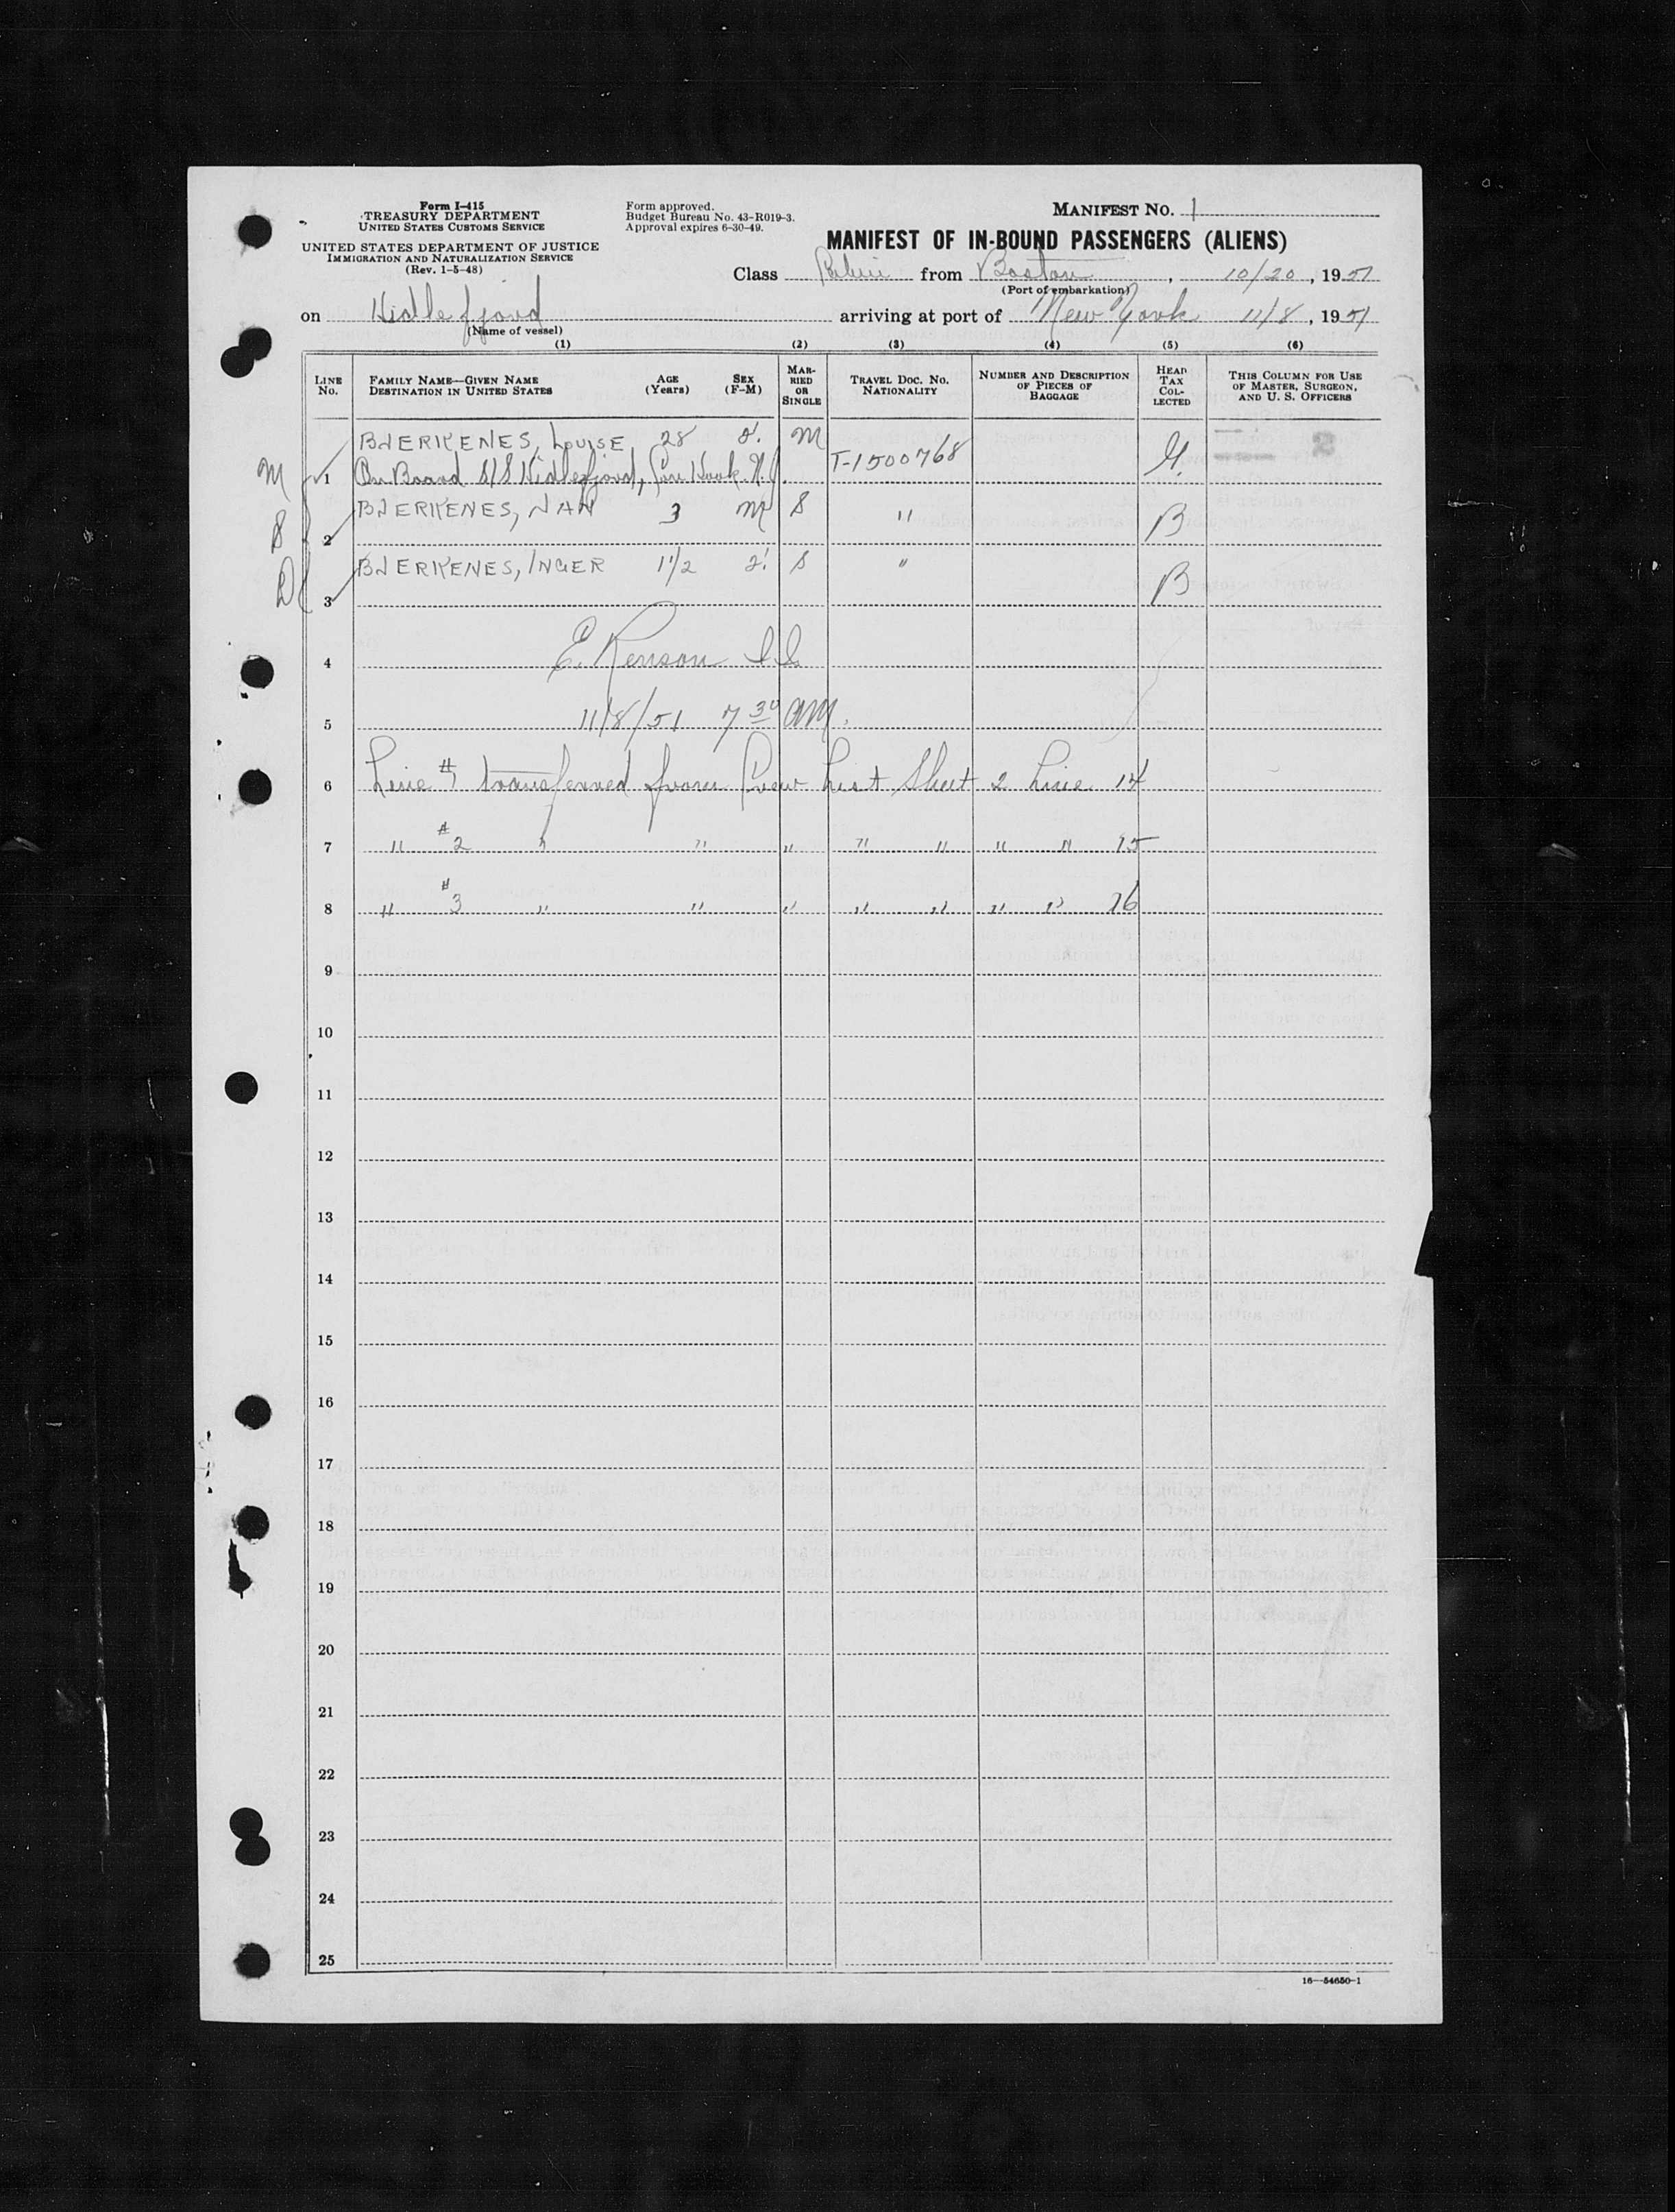 Form I-415
TREASURY DEPARTMENT
UNITED STATES CUSTOMS SERVICE
UNITED STATES DEPARTMENT OF JUSTICE
IMMIGRATION AND NATURALIZATION SERVICE
(Rev. 1-5-48)
Form approved.
Budget Bureau No. 43-R019-3.
Approval expires 6-30-49.
MANIFEST NO. 1
MANIFEST OF IN-BOUND PASSENGERS (ALIENS)
Class from Boston, 10/20, 1951
(Port of embarkation)
on Hidlefjord arriving at port of New York 11/8, 1951
(Name of vessel)
(1) (2) (3) (4) (5) (6)
LINE No. FAMILY NAME—GIVEN NAME DESTINATION IN UNITED STATES AGE (Years) SEX (F-M) MARRIED OR SINGLE TRAVEL DOC. NO. NATIONALITY NUMBER AND DESCRIPTION OF PIECES OF BAGGAGE HEAD TAX COLLECTED THIS COLUMN FOR USE OF MASTER, SURGEON, AND U. S. OFFICERS
BJERKENES, LOUISE 28 f. M T-1500768
M 1 On Board S/S Hidlefjord, Hook. N.J.
S 2 BJERKENES, JAN 3 M S " B
D 3 BJERKENES, INGER 1 1/2 f. S " B
4 E. Renson
5 11/8/51 7 30 AM.
6 Line #1 transferred from Crew List Sheet 2 Line 14
7 " #2 " " " " " " " 15
8 " #3 " " " " " " " 16
9
10
11
12
13
14
15
16
17
18
19
20
21
22
23
24
25
16—54650-1